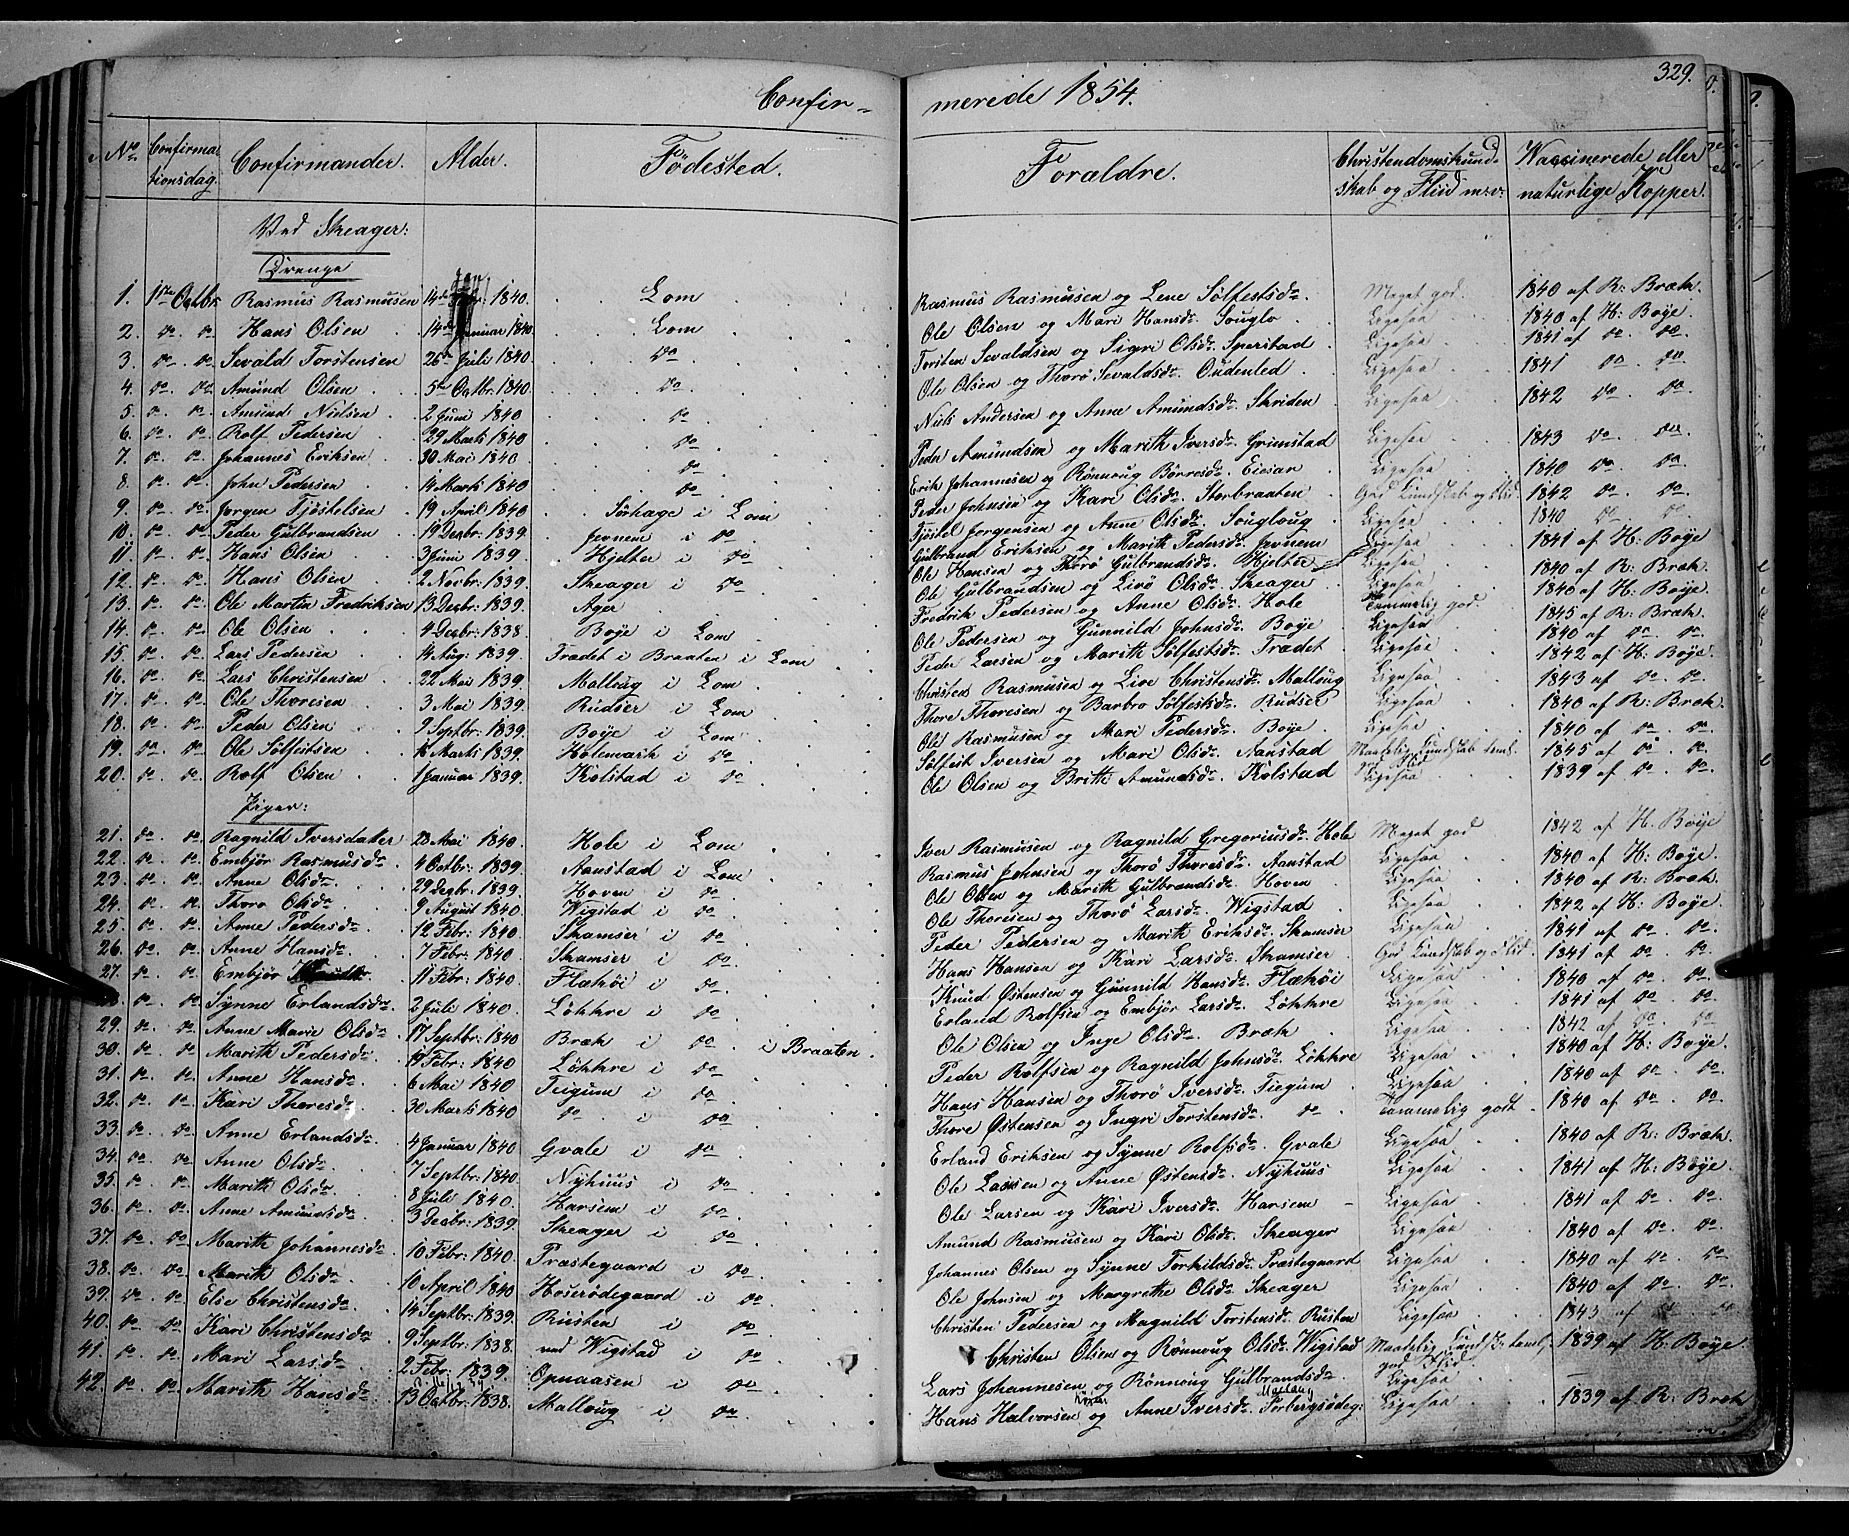 329.
Confirmerede 1854.
No. Confirmationsdag. Confirmander. Alder. Födested. Forældre. Christendomskundskab og Flid m:v: Vaccinerede eller naturlige Kopper.
Ved Skeager:
Drenge
1. 1ste Octbr. Rasmus Rasmusen 14de 1840. Lom Rasmus Rasmusen og Lene Sölfestsdr. Meget god. 1840 af R: Bræk.
2. do. do. Hans Olsen 14de Januar 1840. Lom Ole Olsen og Mari Hansdr. Souglo Ligesaa 1840 af H: Böye.
3. do. do. Sevald Torstensen 26de Juli 1840. do Torsten Sevaldsen og Sigri Olsdr. Sperstad Ligesaa 1841 af do do
4. do. do. Amund Olsen 5te Octbr. 1840. do Ole Olsen og Thorö Sevaldsdr. Oudenled Ligesaa 1841 do do
5. do. do. Amund Nielsen 2 Juni 1840 do Niels Andersen og Anne Amundsdr. Skriden Ligesaa 1842 do do
6. do. do. Rolf Pedersen 29 Marts 1840 do Peder Amundsen og Marith Iversdr. Grimstad Ligesaa 1843 do do
7. do. do. Johannes Eriksen 30 Mai 1840 do Erik Johannesen og Rönnoug Börresdr. Eiesar Ligesaa 1840 do do
8. do. do. John Pedersen 14 Marts 1840 do Peder Johnsen og Kari Olsdr. Storbraaten God Kundskab og Flid. 1842 do do
9. do. do. Jörgen Tjöstelsen 19 April 1840 Sörhage i Lom Tjöstel Jörgensen og Anne Olsdr. Sougloug Ligesaa 1840 do do
10. do. do. Peder Gulbrandsen 19 Decbr: 1839. Jevnem i do Gulbrand Eriksen og Marith Pedersdr. Jevnem Ligesaa 1841 af H: Böye
11. do. do. Hans Olsen 3 Juni 1839. Hjelter i do Ole Hansen og Thorö Gulbrandsdr. Hjelter Ligesaa 1840 af R: Bræk.
12. do. do. Hans Olsen 2 Novbr: 1839. Skeager i do Ole Gulbrandsen og Livö Olsdr. Skeager Ligesaa 1840 af H: Böye.
13. do. do. Ole Martin Fredriksen 13 Decbr: 1839. Ager Fredrik Pedersen og Anne Olsdr. Hole Tammelig god. 1845 af R: Bræk.
14. do. do. Ole Olsen 4 Decbr: 1838. Böye i Lom Ole Pedersen og Gunnild Johnsdr. Böye Ligesaa 1840 af do do.
15. do. do. Lars Pedersen 14 Aug: 1839. Trædet i Braaten i Lom Peder Larsen og Marith Sölfestsdr. Trædet Ligesaa 1842 af H: Böye.
16. do. do. Lars Christensen 22 Mai 1839. Malloug i Lom Christen Rasmusen og Live Christensdr. Malloug Ligesaa 1843 af do. do.
17. do. do. Ole Thoresen 3 Mai 1839. Rudser i Lom Thore Thoresen og Barbro Sölfestsdr. Rudser Ligesaa 1840 af R: Bræk.
18. do. do. Peder Olsen 9 Septbr: 1839. Böye i Lom Ole Rasmusen og Mari Pedersdr. Böye Ligesaa 1840 af do. do.
19. do. do. Ole Sölfestsen Marts 1839. Holemark i do Sölfest Iversen og Mari Olsdr. Aanstad Maadelig Kundskab 1845 af do do.
20. do. do. Rolf Olsen 1 Januar 1839. Kolstad i do Ole Olsen og Britte Amundsdr. Kolstad Ligesaa 1839 af do. do.
Piger:
21. do. do. Ragnild Iversdatter 23 Mai 1840. Hole i Lom Iver Rasmusen og Ragnild Gregoriusdr. Hole Meget god 1842 af H. Böye
22. do. do. Embjör Rasmusdr. 4 Octbr: 1839. Aanstad i Lom Rasmus Johnsen og Thorö Thoresdr. Aanstad Ligesaa 1840 af H: Böye.
23. do. do. Anne Olsdr. 29 Decbr. 1839. Hoven i do Ole Olsen og Marith Gulbrandsdr. Hoven Ligesaa 1840 af R: Bræk.
24. do. do. Thorö Olsdr. 9 August 1840. Wigstad i do Ole Thoresen og Thorö Larsdr. Wigstad Ligesaa 1842 af H: Böye.
25. do. do. Anne Pedersdr. 12 Febr: 1840. Skamser i do Peder Pedersen og Marith Eriksdr. Skamser Ligesaa 1841 af do. do.
26. do. do. Anne Hansdr. 7 Febr: 1840. Skamser i do Hans Hansen og Kari Larsdr. Skamser God Kundskab og Flid. 1841 af do. do.
27. do. do. Embjör 11 Febr: 1840. Flæköi i do Knud Östensen og Gunnild Hansdr. Flæköi Ligesaa 1840 af do. do.
28. do. do. Synne Erlandsdr. 2 Juli 1840. Lökkre i do Erland Rolfsen og Embjör Larsdr. Lökkre Ligesaa 1841 af do. do.
29. do. do. Anne Marie Olsdr. 17 Septbr: 1840 Bræk i do. i Braaten. Ole Olsen og Inge Olsdr. Bræk Ligesaa 1842 af do. do.
30. do. do. Marith Pedersdr. 19 Febr: 1840 Lökkre i do Peder Rolfsen og Ragnild Johnsdr. Lökkre Ligesaa 1840 af H: Böye.
31. do. do. Anne Hansdr. 6 Mai 1840 Teigum i do Hans Hansen og Thorö Iversdr. Tiegum Ligesaa 1840 af do. do.
32. do. do. Kari Thoresdr. 30 Marts 1840 do i do Thore Östensen og Ingri Torstensdr. do Tammelig godt. 1840 af do. do.
33. do. do. Anne Erlandsdr. 4 Januar 1840 Gvale i do Erland Eriksen og Synne Rolfsdr. Gvale Ligesaa 1840 af R: Bræk.
34. do. do. Anne Olsdr. 7 Septbr: 1840. Nyhuus i do. Ole Larsen og Anne Östensdr. Nyhuus Ligesaa 1841 af H: Böye.
35. do. do. Marith Olsdr. 8 Juli 1840. Harsem i do. Ole Larsen og Kari Iversdr. Harsem Ligesaa 1841 af do. do.
36. do. do. Anne Amundsdr. 3 Decbr: 1839. Skeager i do. Amund Rasmusen og Kari Olsdr. Skeager Ligesaa 1840 af do. do.
37. do. do. Marith Johannesdr. 10 Febr: 1840. Præstegaard i do. Johannes Olsen og Synne Torkildsdr. Præstegaard Ligesaa 1840 af do. do.
38. do. do. Marith Olsdr. 10 April 1840 Hoserödegaard i do. Ole Johnsen og Margrethe Olsdr. Skeager Ligesaa 1840 af do. do.
39. do. do. Else Christensdr. 14 Septbr: 1839. Rusten i do. Christen Pedersen og Magnild Torstensdr. Rusten Ligesaa 1843 af do do
40. do. do. Kari Christensdr. 9 Septbr: 1838. ved Wigstad i do. Christen Olsen og Rönnoug Olsdr. Wigstad Maadelig god Flid 1839 af H. Böye.
41. do. do. Mari Larsdr. 2 Febr: 1839. Opnaasen i do. Lars Johannesen og Rönnoug Gulbrandsdr. Ligesaa
42. do. do. Marith Hansdr. 13 Octbr: 1838. Malloug i do. Hans Halvorsen og Anne Iversdr. Ligesaa 1839 af R: Bræk